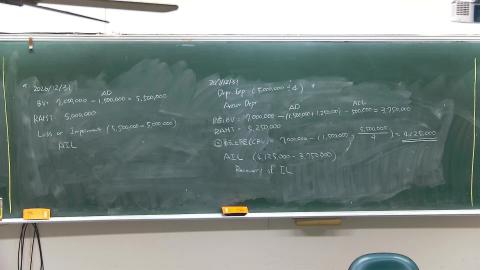 2020/12/31
AD
BV: 7,000,000 - 1,500,000 = 5,500,000
RAMT: 5,000,000
Loss on Impairment (5,500,000 - 5,000,000)
AIL
12/31
Depr. Exp (5,000,000 ÷ 4)
Accum Depr
AD
AIL
BV: 7,000,000 - (1,500,000 + 1,250,000) - 500,000 = 3,750,000
RAMT:
7,000,000 - (1,500,000 + 5,500,000/4) = 4,125,000
AIL (4,125,000 - 3,750,000)
Recovery of IL